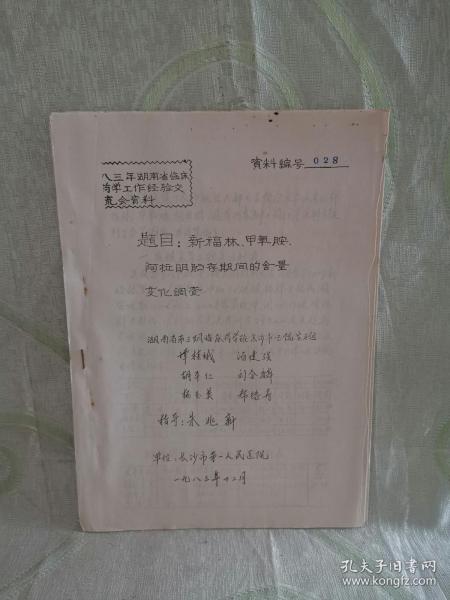 八三年湖南省临床
药学工作经验交
流会资料
资料编号 028
题目:新福林、甲氧胺、
阿拉明贮存期间的含量
变化调查
湖南省第三期临床药学班长沙市
谭桂城
胡章仁
指导:朱兆新
单位:长沙市第一人民医院
一九八三年十二月
孔夫子旧书网
www.kongfz.com